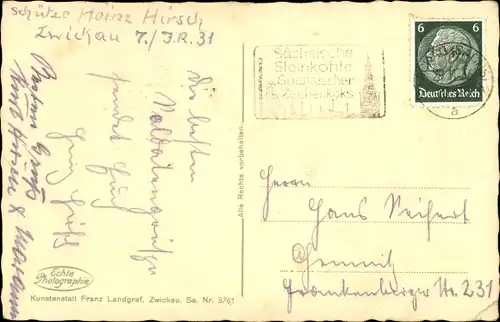 Schütze Heinz Hirsch
Zwickau 7./J.R. 31
Die besten
Soldatengrüße
sendet Euch
Heinz Hirsch
Besten Gruß
Kurt
6 6
Deutsches Reich
Sächsische
Steinkohle
Sächsischer
Zechenkoks
Alle Rechte vorbehalten.
Herrn
Hans Neihert
Chemnitz
Frankenberger Str. 231
Echte
Photographie
Kunstanstalt Franz Landgraf, Zwickau. Sa. Nr. 9761